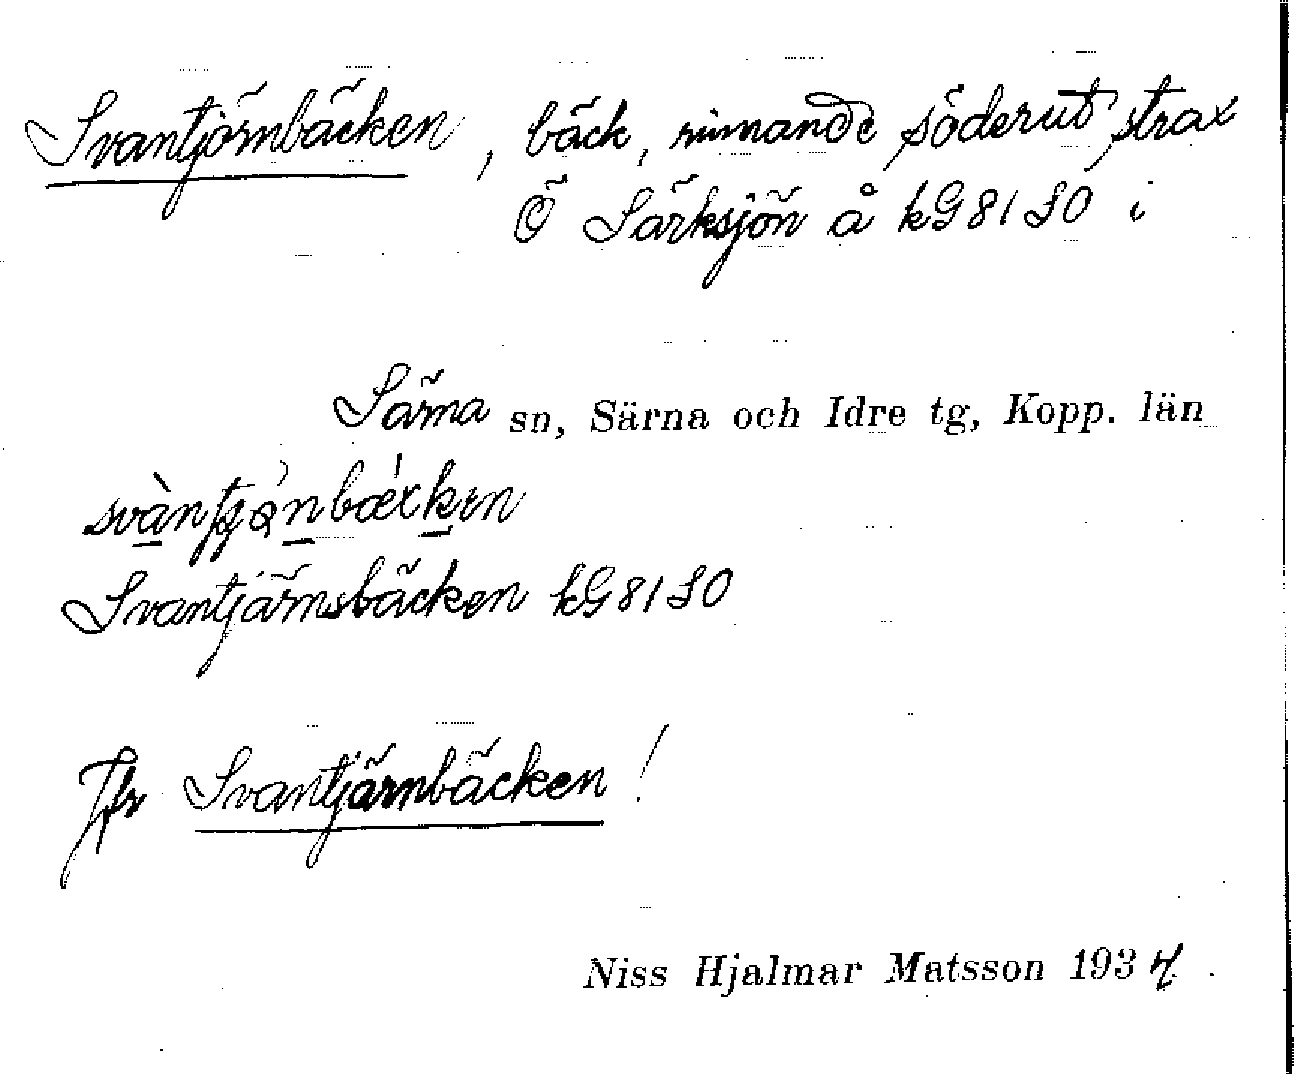 Svantjörnbäcken, bäck, rinnande söderut strax
Ö Särksjön å kG 81 SO i
Särna sn, Särna och Idre tg, Kopp. län
Svantjärnsbäcken kG 81 SO
Jfr Svantjärnbäcken!
Niss Hjalmar Matsson 1934.